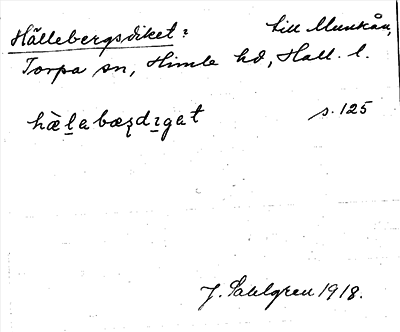 Hällebergsdiket: till Munkån,
Torpa sn, Himle hd, Hall. l.
hæ̀l̠abæʂd̠ɪgat s. 125
J. Sahlgren 1918.